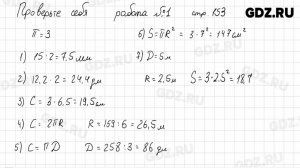 Проверьте себя работа №1 стр 153
GDZ.RU
π=3
6) S=πR² = 3·7² = 147 см²
1) 15:2=7,5 мм
7) D=5м
2) 12,2·2=24,4 дм
R=2,5м S=3·2,5²=18,7
3) C=3·6,5=19,5м
4) C=2πR R=159:6=26,5м
5) C=πD D=258:3=86 дм
GDZ.RU